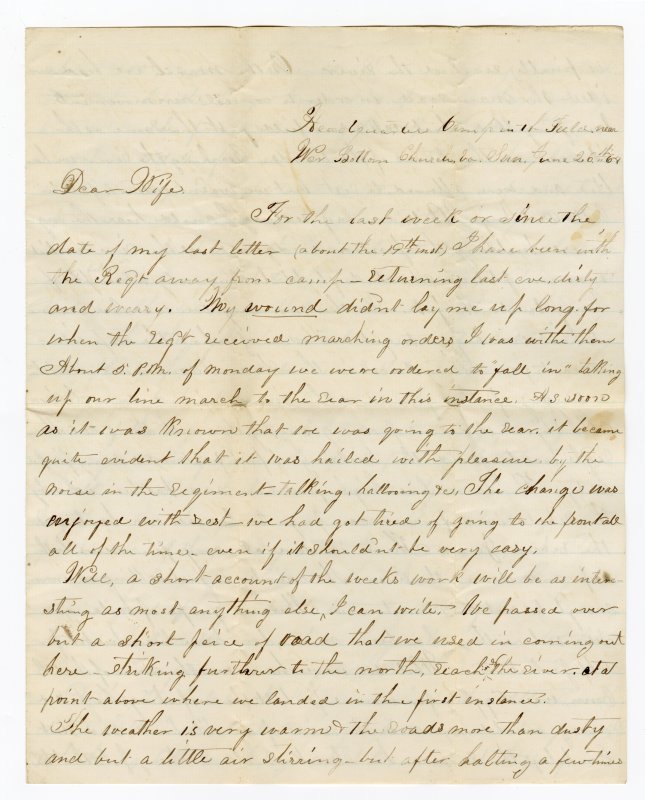 Headquarters Camp in the Field, near
Wier Bottom Church, Va. Sun. June 26th 64
Dear Wife
For the last week or since the
date of my last letter (about the 19th inst) I have been with
the Regt away from camp - returning last eve, dirty
and weary. My wound didnt lay me up long, for
when the regt received marching orders I was withe them
About 5. P.M. of monday we were ordered to "fall in" talking
up our line march to the rear in this instance. As soon
as it was known that we was going to the rear. it became
quite evident that it was hailed with pleasure by the
noise in the regiment - talking, hallooing &c, The change was
enjoyed with zest - we had got tired of going to the front all
all of the time - even if it shouldnt be very easy.
Well, a short account of the weeks work will be as inter-
sting as most anything else, I can write. We passed over
but a short peice of road that we used in coming out
here - striking further to the north, reach'g the river. at a
point above where we landed in the first instance.
The weather is very warm & the roads more than dusty
and but a little air stirring - but after halting a few times